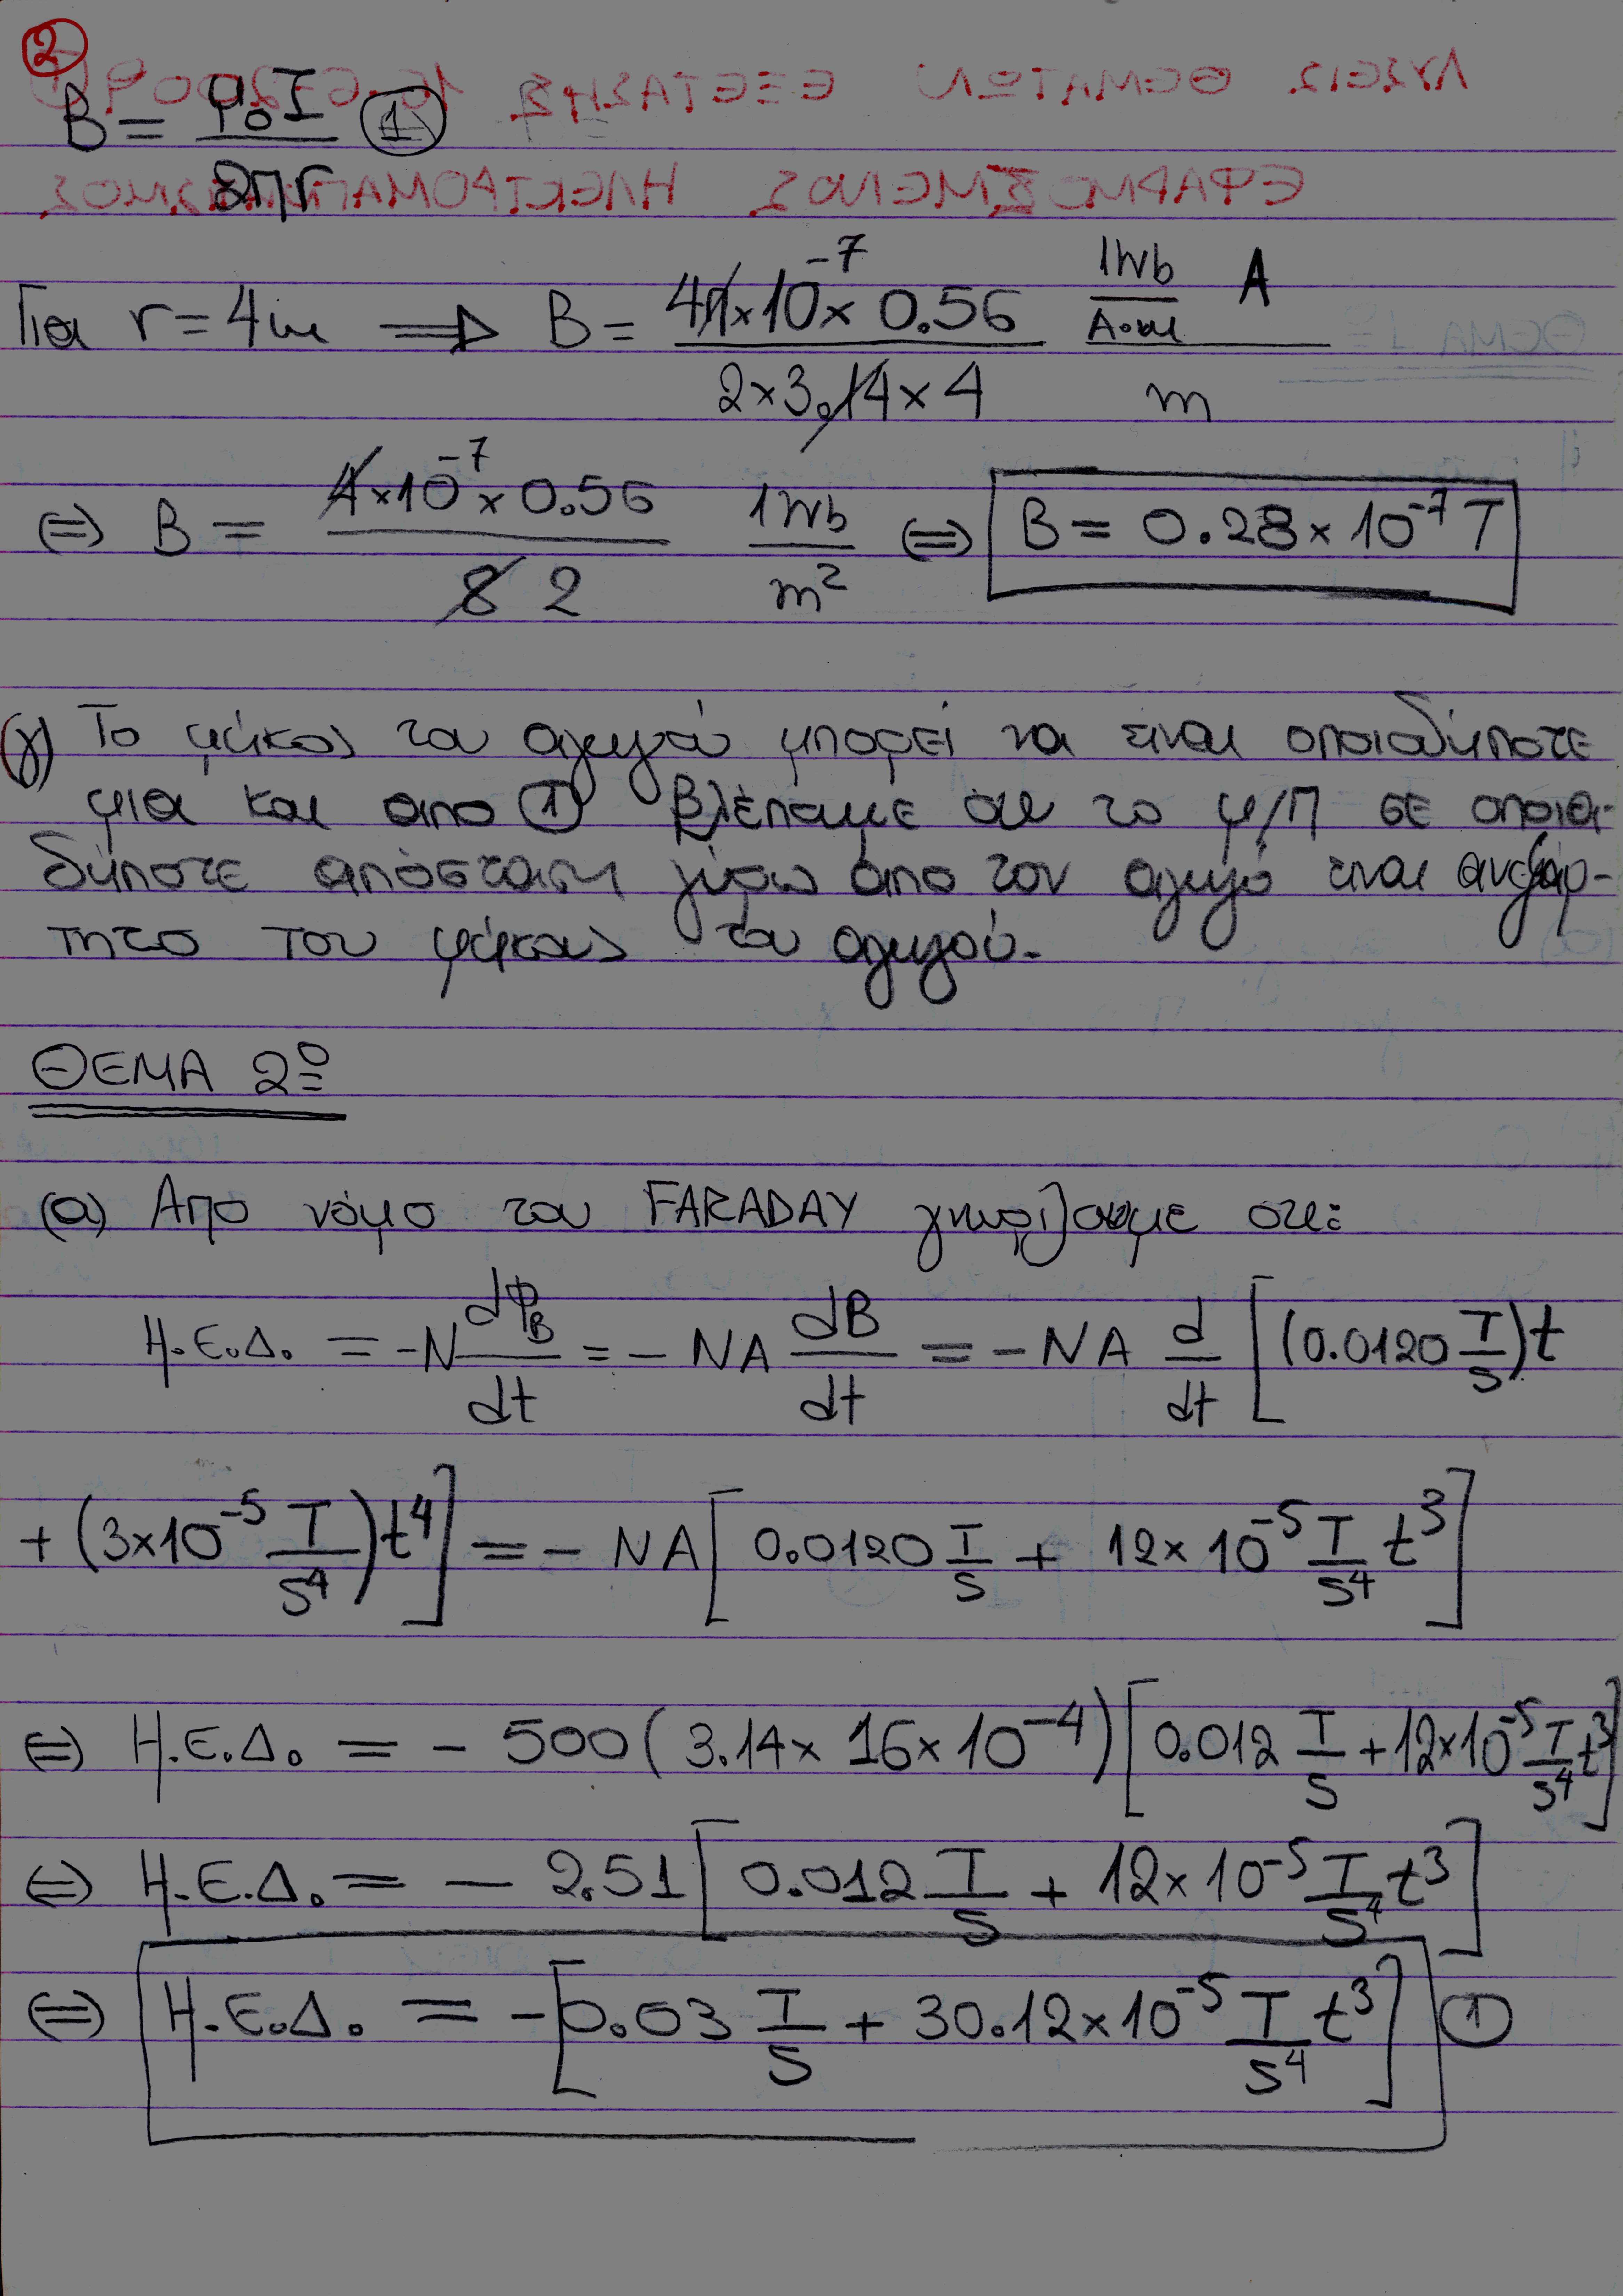 ②
B = μ₀I / 2πr ①
Για r = 4m ⟹ B = 4π×10⁻⁷×0.56 / 2×3.14×4 1Wb/A·m A / m
⇔ B = 4×10⁻⁷×0.56 / 8 2 1Wb/m² ⇔ B = 0.28×10⁻⁷ T
(γ) Το μήκος του αγωγού μπορεί να είναι οποιοδήποτε
μια και απο ① βλέπουμε ότι το μ/Π σε οποιο-
δήποτε απόσταση γύρω απο τον αγωγό είναι ανεξάρ-
τητο του μήκους του αγωγού.
ΘΕΜΑ 2º
(α) Απο νόμο του FARADAY γνωρίζουμε οτι:
Η.Ε.Δ. = -N dΦ_B/dt = - NA dB/dt = - NA d/dt [(0.0120 T/s)t
+ (3×10⁻⁵ T/s⁴)t⁴] = - NA[0.0120 T/s + 12×10⁻⁵ T/s⁴ t³]
⇔ Η.Ε.Δ. = - 500(3.14×16×10⁻⁴)[0.012 T/s + 12×10⁻⁵ T/s⁴ t³]
⇔ Η.Ε.Δ. = - 2.51[0.012 T/s + 12×10⁻⁵ T/s⁴ t³]
⇔ Η.Ε.Δ. = -[0.03 T/s + 30.12×10⁻⁵ T/s⁴ t³] ①